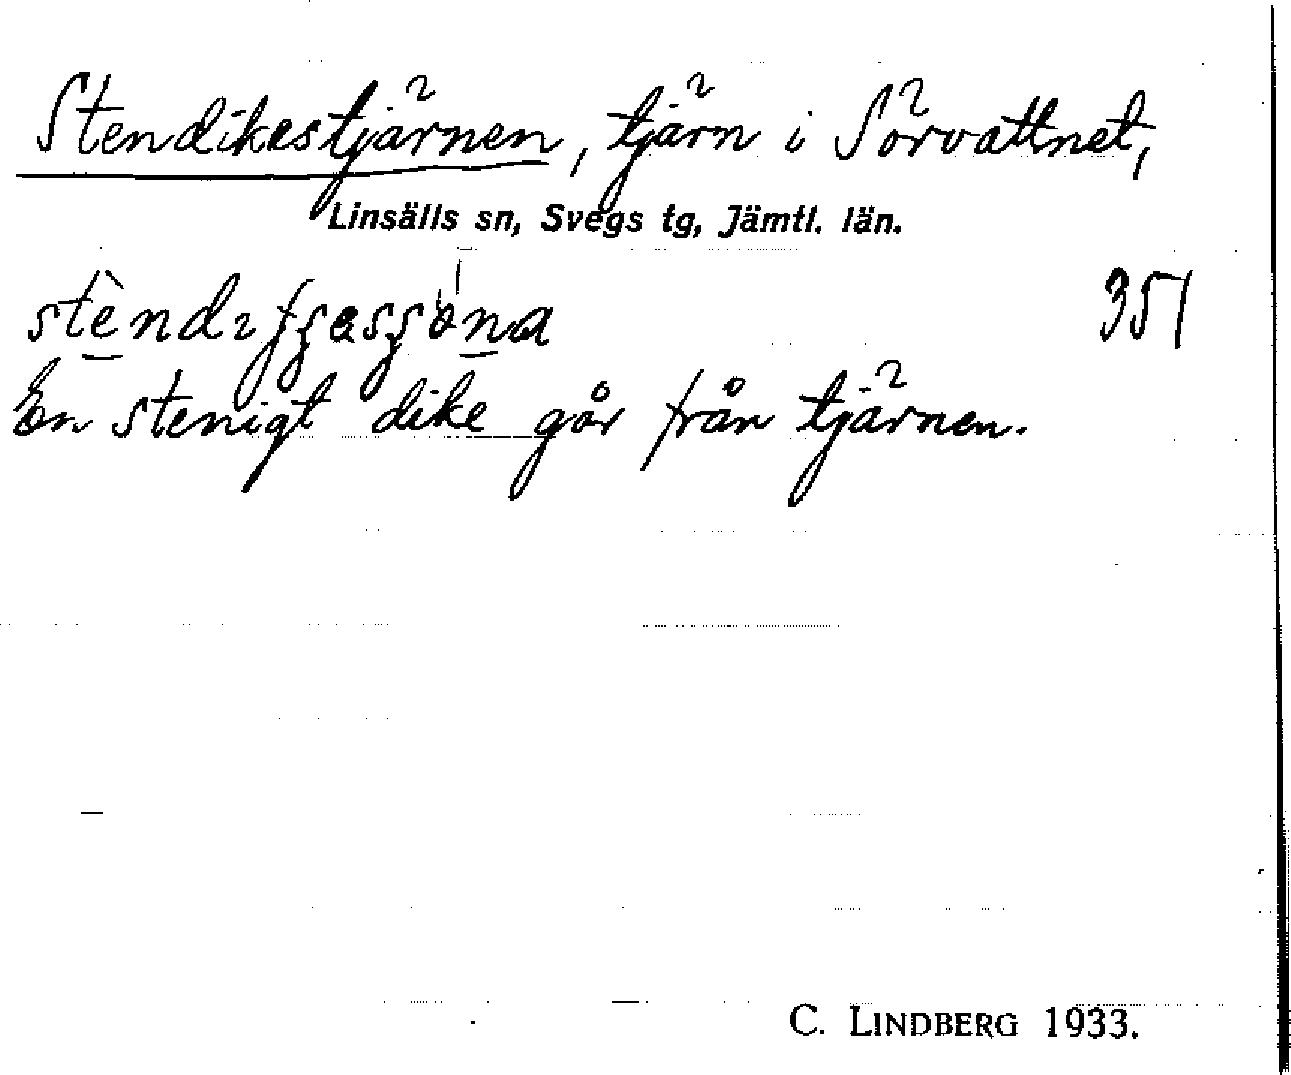 Stendikestjärnen, tjärn i Sörvattnet,
Linsälls sn, Svegs tg, Jämtl. län.
351
En stenigt dike går från tjärnen.
C. LINDBERG 1933.